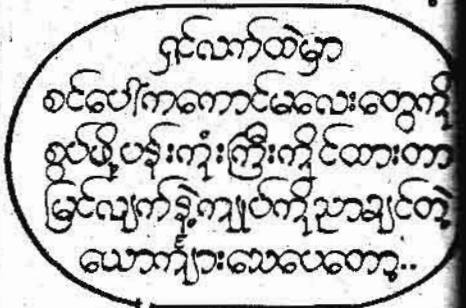 ရှင်လက်ထဲမှာ
စင်ပေါ်ကကောင်မလေးတွေကို
စွပ်ဖို့ပန်းကုံးကြီးကိုင်ထားတာ
မြင်လျက်နဲ့ကျုပ်ကိုညာချင်တဲ့
ယောက်ျားသေပေတော့..